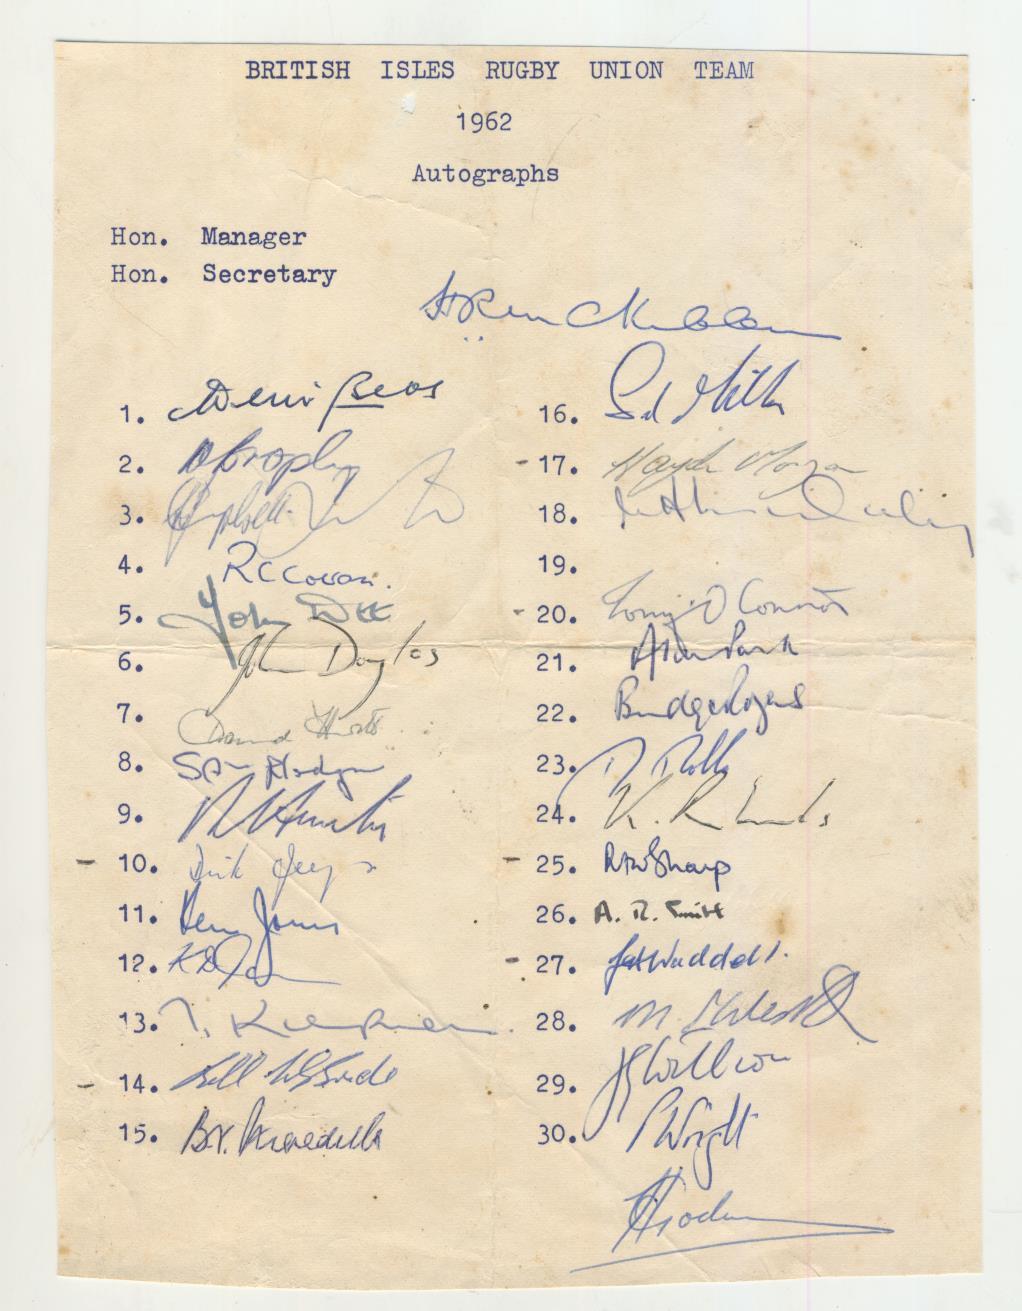 BRITISH ISLES RUGBY UNION TEAM
1962
Autographs
Hon. Manager
Hon. Secretary
1. Denis Bebb
2. N Brophy
3. Campbell
4. R C Cowan.
5. John Dee
6. John Douglas
7.
8. Sam Hodgson
9.
10. Dick Jeeps
11. Ken Jones
12. K D Jones
13. T. Kiernan.
14. Bill McBride
15. B.V. Meredith
16. Syd Millar
17. Haydn Morgan
18.
19.
20. Tony O Connor
21. Alan Pask
22. Budge Rogers
23. D Rollo
24. K. Rowlands
25. RAW Sharp
26. A. R. Smith
27. GH Waddell.
28. M.
29. JG Willcox
30. P Wright